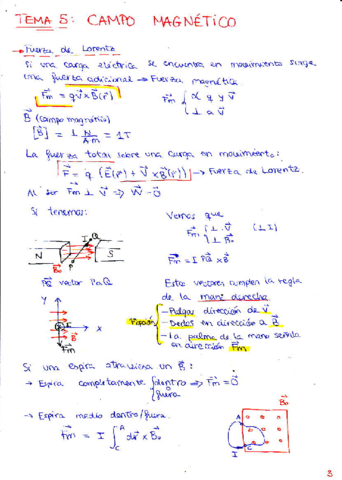 TEMA 5: CAMPO MAGNÉTICO
→ Fuerza de Lorentz
Si una carga eléctrica se encuentra en movimiento surge
una fuerza adicional → Fuerza magnética
F⃗m = q v⃗ x B⃗(r⃗)
F⃗m { α q y v⃗
⊥ a v⃗
B⃗ (campo magnético)
[B⃗] = 1 N/Am = 1T
La fuerza total sobre una carga en movimiento:
F⃗ = q (E⃗(r⃗) + v⃗ x B⃗(r⃗)) → Fuerza de Lorentz.
Al ser F⃗m ⊥ v⃗ ⇒ W = 0
Si tenemos:
Vemos que
F⃗m { ⊥ v⃗ (⊥ I)
⊥ B⃗o
I Q
N S
B⃗o P
F⃗m = I PQ⃗ x B⃗
PQ⃗ vector P a Q
Estos vectores cumplen la regla
de la mano derecha
Y
X
B⃗
F⃗m
- Pulgar dirección de v⃗
- Dedos en dirección a B⃗
- La palma de la mano señala
en dirección F⃗m
Si una espira atraviesa un B⃗:
→ Espira completamente { dentro ⇒ F⃗m = 0⃗
fuera
→ Espira medio dentro/fuera
F⃗m = I ∫_C^A dr⃗ x B⃗o
B⃗o
A
C
I
3